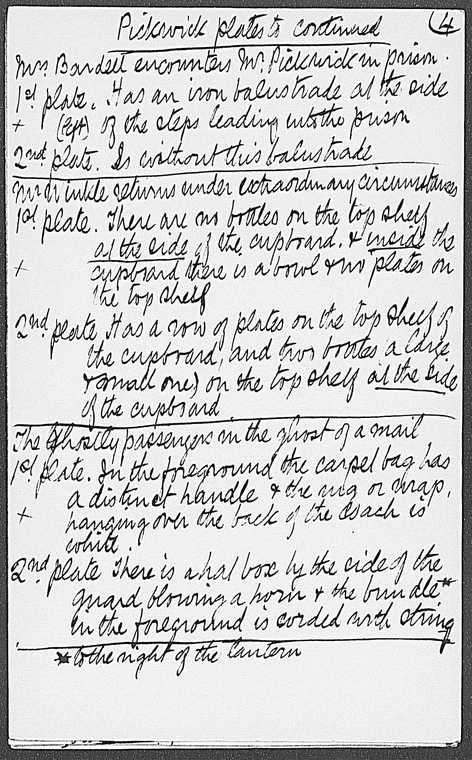 Pickwick plates to continued (4
Mrs Bardell encounters Mr. Pickwick in prison.
1st plate. Has an iron balustrade at the side
+ (left) of the steps leading into the prison
2nd plate. Is without this balustrade
Mr Winkle returns under extraordinary circumstances
1st plate. There are no bottles on the top shelf
at the side of the cupboard. & inside the
+ cupboard there is a bowl & no plates on
the top shelf
2nd plate Has a row of plates on the top shelf of
the cupboard, and two bottles (a large
& small one) on the top shelf at the side
of the cupboard
The Ghostly passengers in the ghost of a mail
1st plate. In the foreground the carpet bag has
a distinct handle & the rug or wrap,
+ hanging over the back of the coach is
white.
2nd plate There is a hat box by the side of the
guard blowing a horn & the bundle*
in the foreground is corded with string
* to the right of the lantern